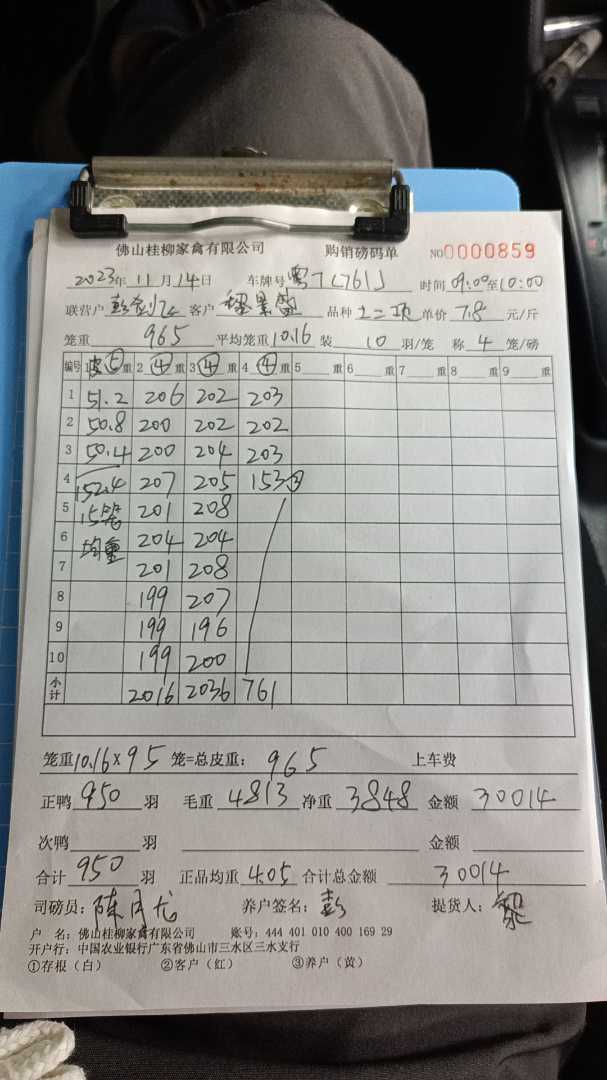 佛山桂柳家禽有限公司 购销磅码单 NO0000859
2023年 11月 14日 车牌号 粤 时间 09:00至10:00
联营户 彭 客户 品种 土二项 单价 7.8 元/斤
笼重 965 平均笼重 10.16 装 10 羽/笼 称 4 笼/磅
编号 1 皮⑤重 2 ④重 3 ④重 4 ④重 5 重 6 重 7 重 8 重 9 重
1 51.2 206 202 203
2 50.8 200 202 202
3 50.4 200 204 203
4 152.4 207 205 153③
5 15笼 201 208
6 均重 204 204
7 201 208
8 199 207
9 199 196
10 199 200
小计 2016 2036 761
笼重10.16×95 笼=总皮重: 965 上车费
正鸭 950 羽 毛重 4813 净重 3848 金额 30014
次鸭 羽 金额
合计 950 羽 正品均重 4.05 合计总金额 30014
司磅员: 陈月龙 养户签名: 彭 提货人: 黎
户 名: 佛山桂柳家禽有限公司 账号: 444 401 010 400 169 29
开户行: 中国农业银行广东省佛山市三水区三水支行
①存根（白） ②客户（红） ③养户（黄）